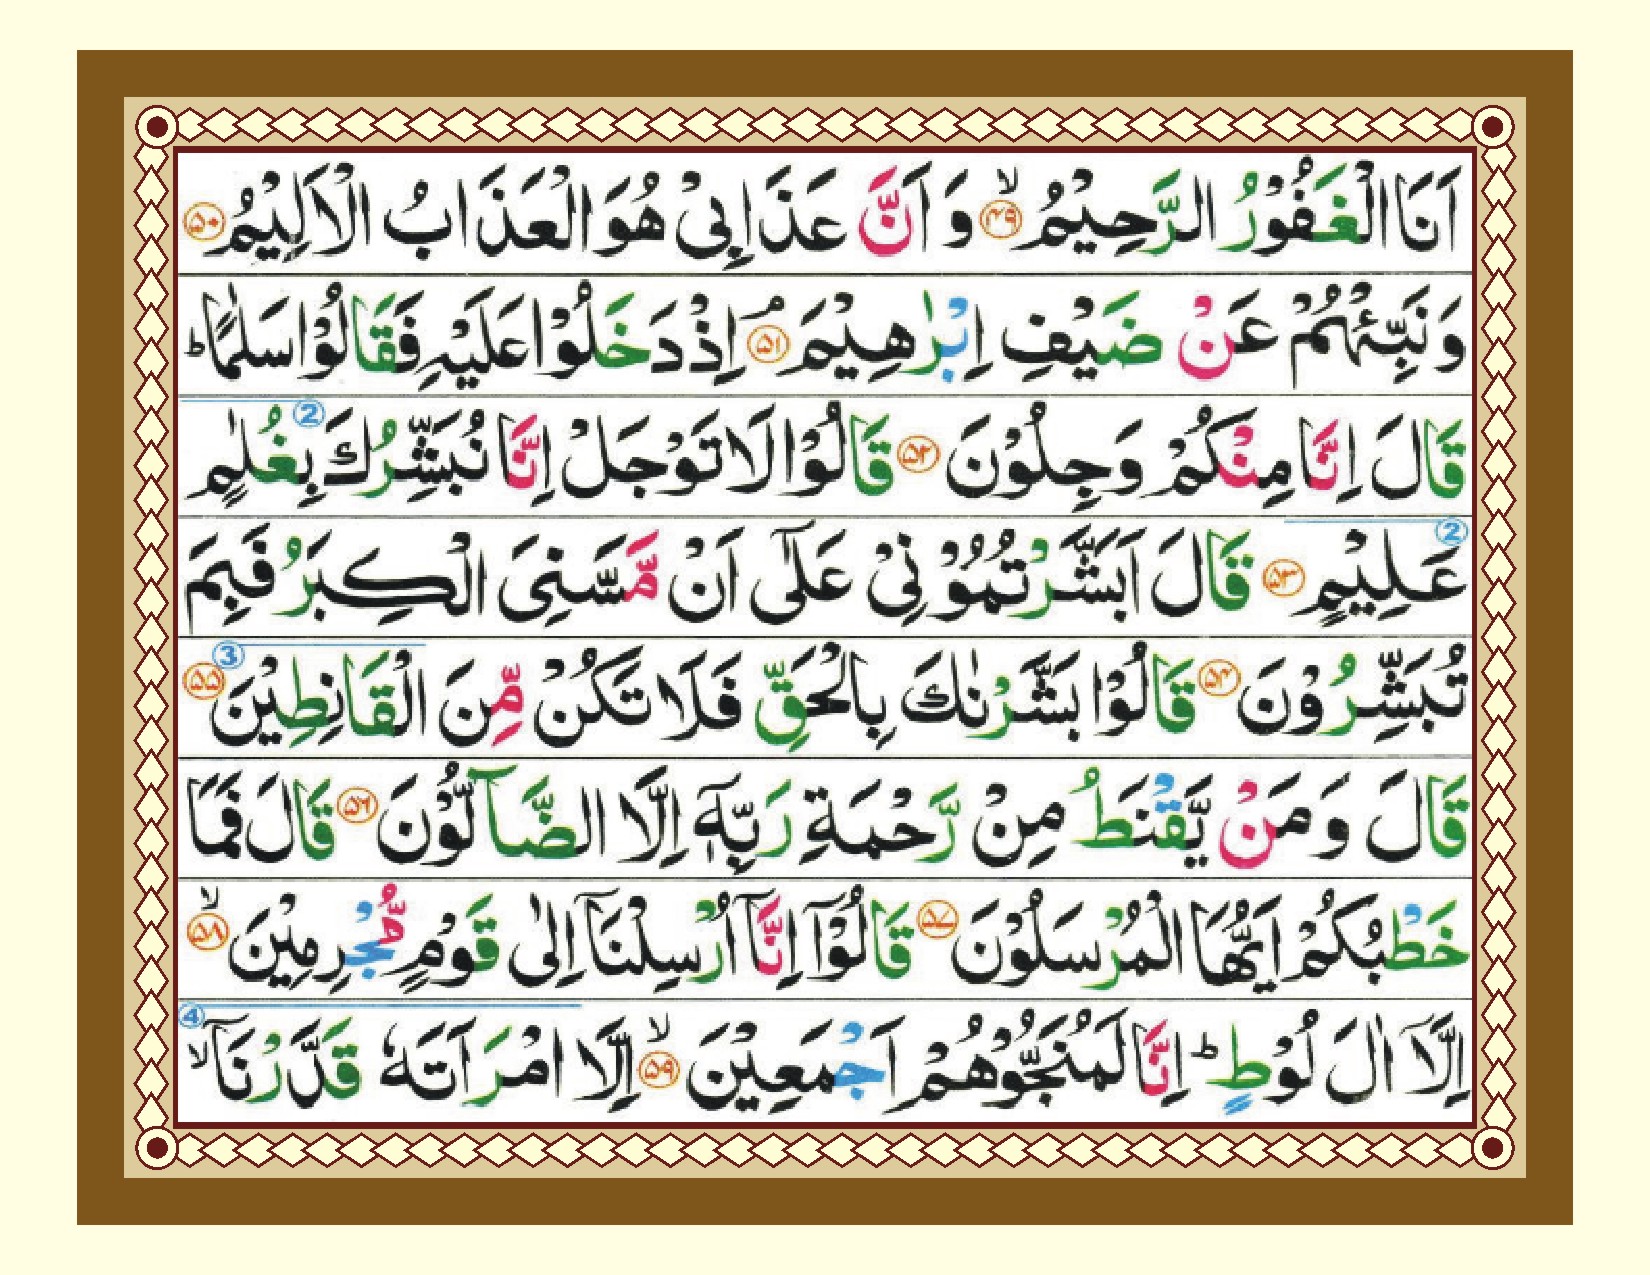 اَنَا الْغَفُوْرُ الرَّحِيْمُ ۙ﴿۴۹﴾ وَ اَنَّ عَذَابِیْ هُوَ الْعَذَابُ الْاَلِيْمُ ﴿۵۰﴾
وَنَبِّئْهُمْ عَنْ ضَيْفِ اِبْرٰهِيْمَ ۘ﴿۵۱﴾ اِذْ دَخَلُوْا عَلَيْهِ فَقَالُوْا سَلٰمًا ؕ
قَالَ اِنَّا مِنْكُمْ وَجِلُوْنَ ﴿۵۲﴾ قَالُوْا لَا تَوْجَلْ اِنَّا نُبَشِّرُكَ بِغُلٰمٍ 2
2 عَلِيْمٍ ﴿۵۳﴾ قَالَ اَبَشَّرْتُمُوْنِیْ عَلٰۤی اَنْ مَّسَّنِیَ الْكِبَرُ فَبِمَ
تُبَشِّرُوْنَ ﴿۵۴﴾ قَالُوْا بَشَّرْنٰكَ بِالْحَقِّ فَلَا تَكُنْ مِّنَ الْقَانِطِيْنَ 3 ﴿۵۵﴾
قَالَ وَمَنْ يَّقْنَطُ مِنْ رَّحْمَةِ رَبِّهٖۤ اِلَّا الضَّآلُّوْنَ ﴿۵۶﴾ قَالَ فَمَا
خَطْبُكُمْ اَيُّهَا الْمُرْسَلُوْنَ ﴿۵۷﴾ قَالُوْۤا اِنَّاۤ اُرْسِلْنَاۤ اِلٰی قَوْمٍ مُّجْرِمِيْنَ ۙ﴿۵۸﴾
اِلَّاۤ اٰلَ لُوْطٍ ؕ اِنَّا لَمُنَجُّوْهُمْ اَجْمَعِيْنَ ۙ﴿۵۹﴾ اِلَّا امْرَاَتَهٗ قَدَّرْنَاۤ ۙ 4